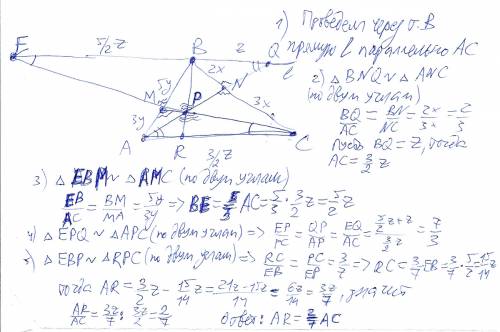 1) Проведем через т. B
прямую ℓ параллельно AC
E
5/2 z
B
z
Q
ℓ
2x
5y
M
N
P
3y
3x
A
R
3/2 z
C
2) △BNQ ~ △ANC
(по двум углам)
BQ/AC = BN/NC = 2x/3x = 2/3
пусть BQ = z, тогда
AC = 3/2 z
3) △EBM ~ △AMC (по двум углам)
EB/AC = BM/MA = 5y/3y => BE = 5/3 AC = 5/3 · 3/2 z = 5/2 z
4) △EPQ ~ △APC (по двум углам) => EP/PC = QP/AP = EQ/AC = (5/2 z + z)/(3/2 z) = 7/3
5) △EBP ~ △RPC (по двум углам) => RC/EB = PC/EP = 3/7 => RC = 3/7 EB = 3/7 · 5/2 z = 15/14 z
тогда AR = 3/2 z − 15/14 z = (21z − 15z)/14 = 6z/14 = 3z/7, значит
AR/AC = 3z/7 : 3z/2 = 2/7
ответ: AR = 2/7 AC